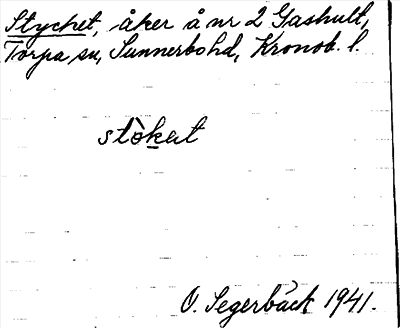 Stychet, åker å nr 2 Gashult,
Torpa sn, Sunnerbo hd, Kronob. l.
stò̀kat
O. Segerbäck 1941.